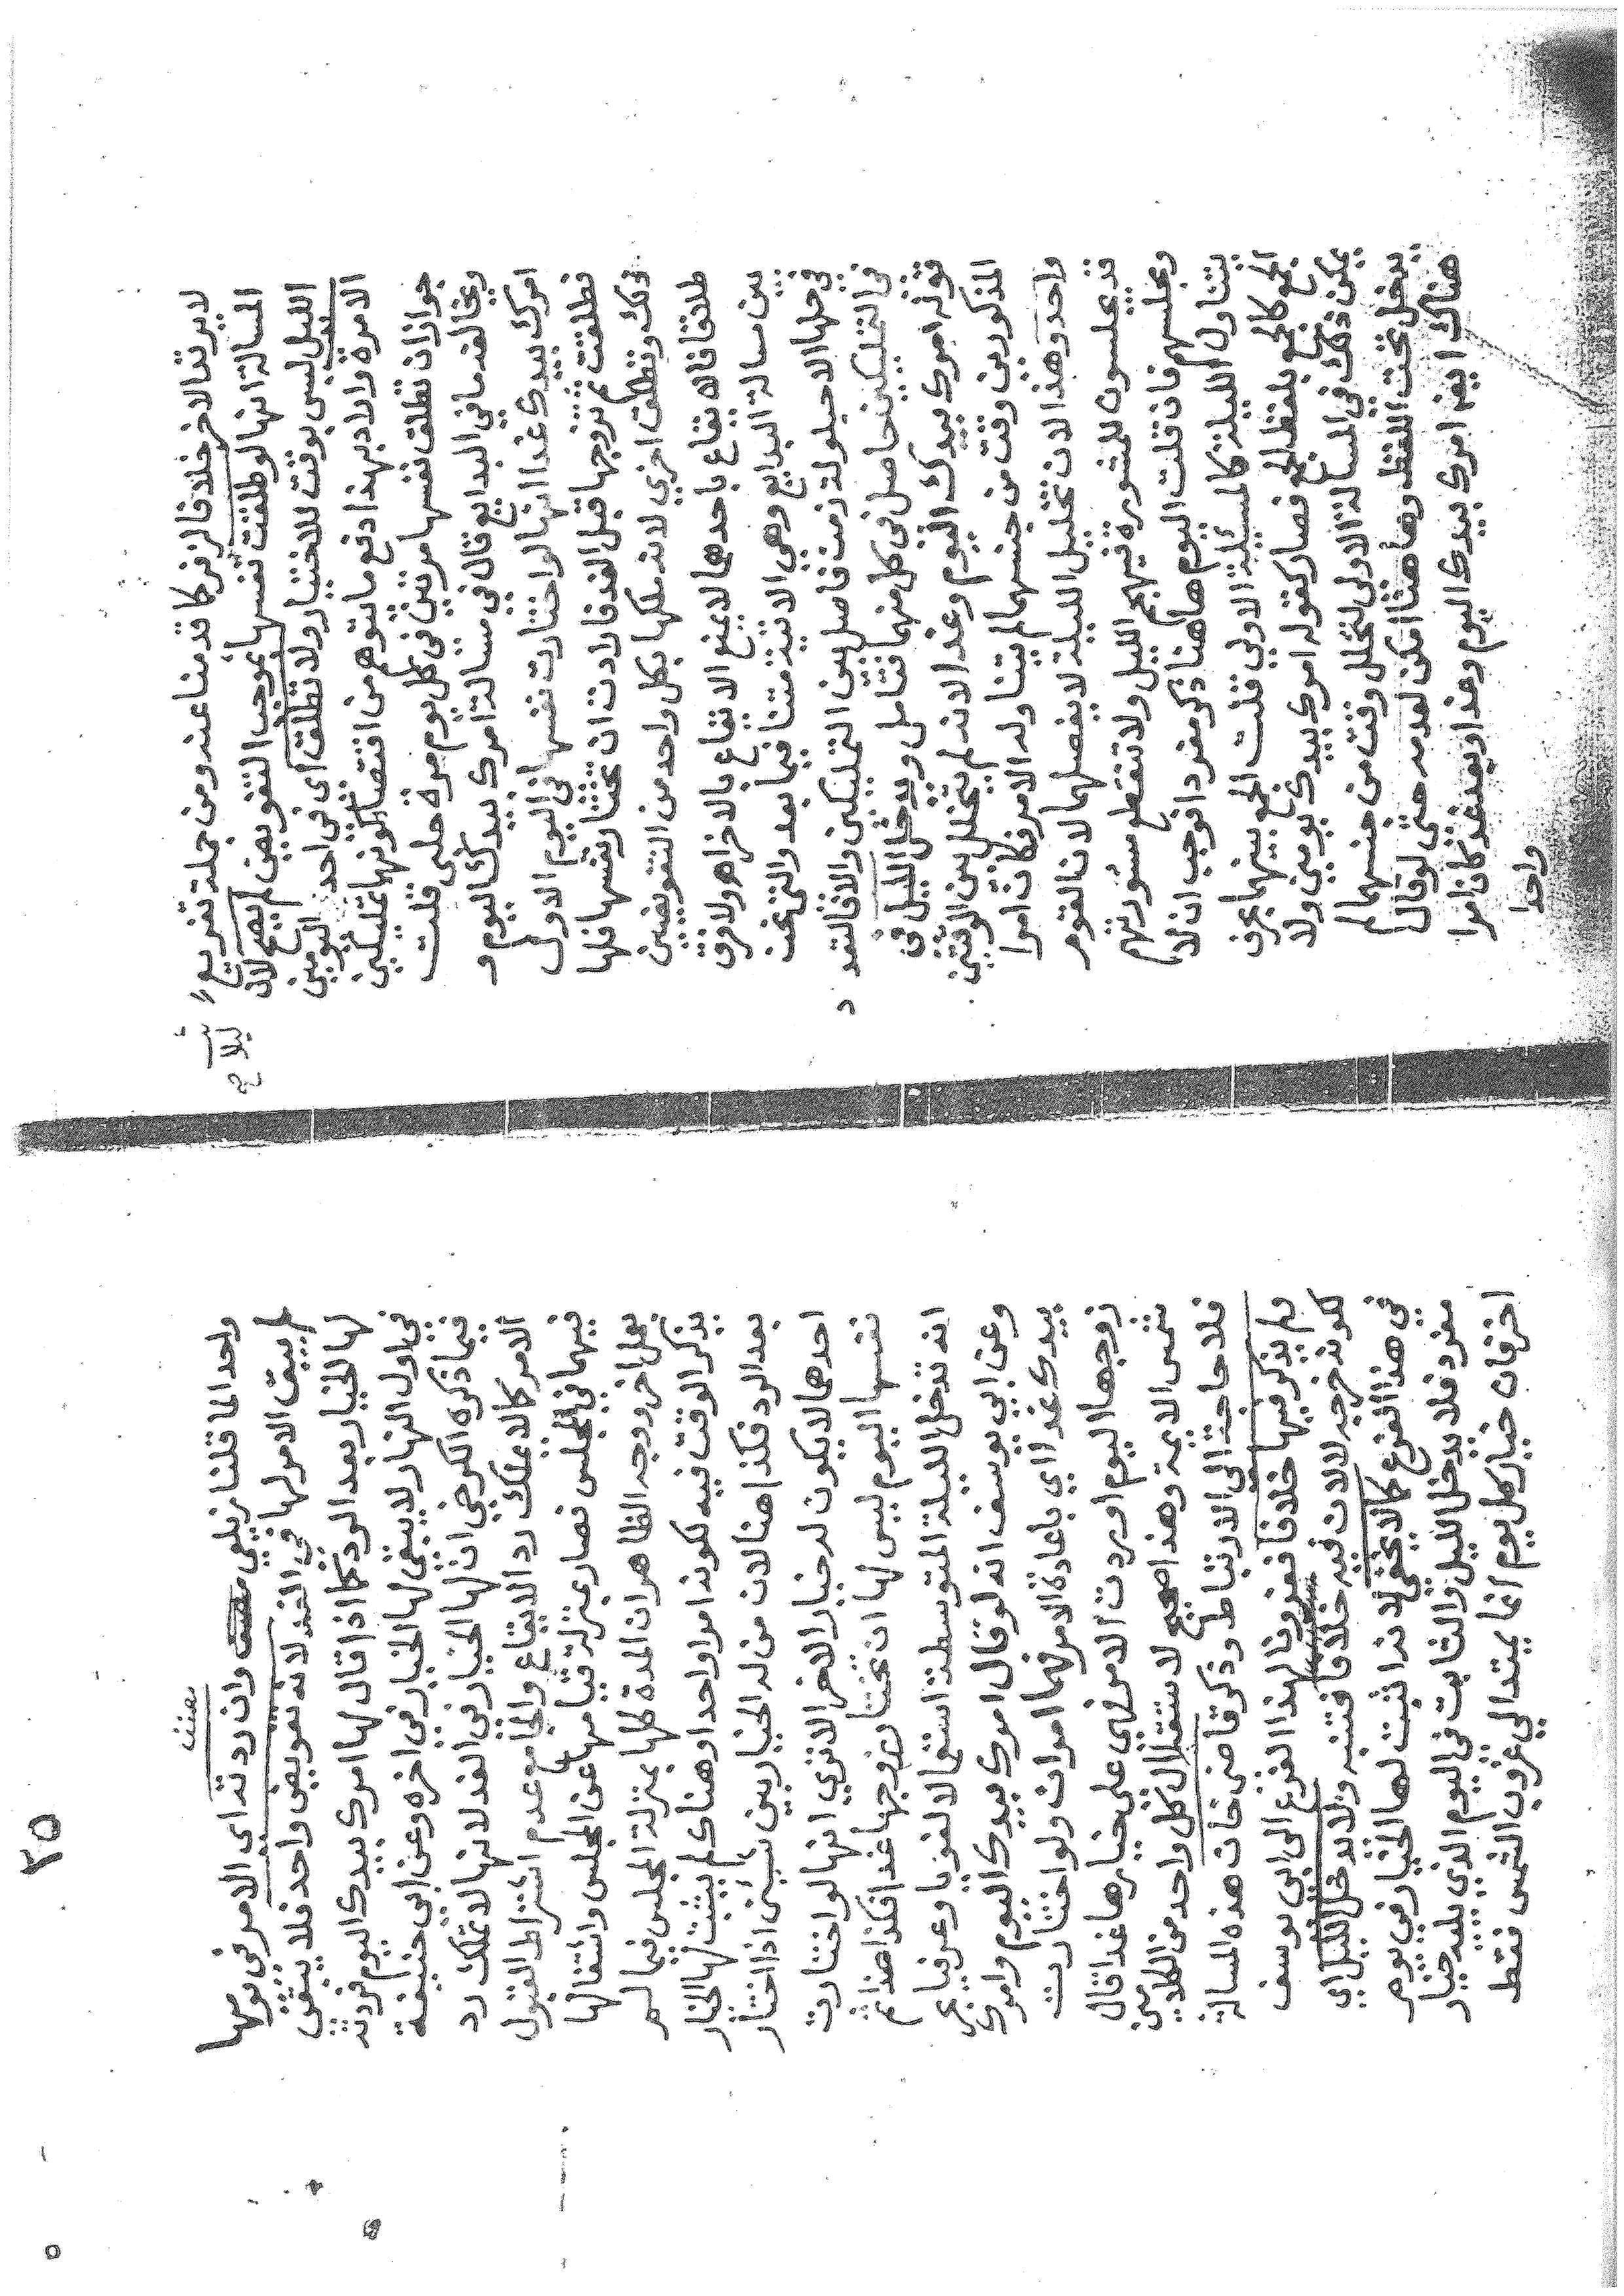 لا يرتد الاخر خلافا لزفر كما قدمنا عنه ومن جملة تفريع
المسالة انها لو طلقت نفسها بموجب التفويض لم يصح لان
الليل ليس بوقت للاختيار ولا تطلق اى فى احد اليومين
الا مرة وارادبهذا دفع مايتوهم من اقتضا كونها تمليكين
جواز ان تطلق نفسها مرتين فى كل يوم مرة حلبى قلت
ويخالفه مافي البدايع قال فى مسالة امرك بيدك اليوم و
امرك بيدك غدا انها لو اختارت نفسها فى اليوم الاول
فطلقت ثم تزوجها قبل الغد فارادت ان تختار نفسها فلها
ذلك وتطلق اخرى لانه ملكها بكل واحد من التفويضين
طلاقا فالايقاع باحدهما لايمنع الايقاع بالاخر اهـ ولا فرق
بين مسالة البدايع وهى الاتية متنا فيما بعد والتى نحن
فى حلها الاحيلولة زمن فاصل بين التمليكين والاقالتعدد
فى التمليكين حاصل فى كل منهما فتامل ويدخل الليل فى
قوله امرك بيدك اليوم وغدا لانه لم يتخلل بين الوقتين
المذكورين وقت من جنسهما لم يتناوله الامر فكان امرا
واحدا وهذا لان تخليل الليلة لايفصلهما لان القوم
قد يجلسون للمشورة فيهجم الليل ولا تنقطع مشورتهم
ومجلسهم فان قلت اليوم هاهنا ذكر مفردا فوجب ان لا
يتناول الليلة كالمسئلة الاولى قلت الجمع بينهما بحرف
الجمع كالجمع بلفظ الجمع فصار كقوله امرك بيدك يومين ولا
يمكن ذلك فى المسالة الاولى لتخلل وقت من جنسهما لم
يدخل تحت اللفظ وهاهنا امكن لعدمه حتى لو قال
هناك ايضا امرك بيدك اليوم وغدا وبعد غد كان امرا
واحدا
٢٥
واحدا لما قلنا زيلعي وان ردته اى الامر فى يومها
لم يبق الامر لها فى الغد لانه تفويض واحد فلا يبقى
لها الخيار بعد الرد كما اذا قال لها امرك بيدك اليوم فردته
فى اول النهار لا يبقى لها الخيار فى اخره وعن ابى حنيفة
فيما ذكره الكرخى ان لها الخيار فى الغد لانها لا تملك رد
الامر كما لا تملك رد الايقاع والجامع عدم اشتراط القبول
فيهما فى المجلس فصار بمنزلة قيامها عن المجلس واشتغالها
بعمل اخر ووجه الظاهر ان المدة كلها بمنزلة المجلس فيما لم
يذكر الوقت فيه لكونه امرا واحدا وهناك لم يثبت لها الخيار
بعد الرد فكذا هنا لان من له الخيار بين شيئين اذا اختار
احدهما لا يكون له خيار الاخر الا ترى انها لو اختارت
نفسها اليوم ليس لها ان تختار زوجها غدا فكذا هذا ثم
انه تدخل الليلة المتوسطة استعمالا لغويا وعرفيا ع
وعن ابى يوسف انه لو قال امرك بيدك اليوم وامرك
بيدك غدا اى باعادة الامر فهما امران ولو اختارت
زوجها اليوم او ردت الامر فهى على خيارها غدا قال
شمس الايمة وهذا صحيح لاستقلال كل واحد من الكلامين
فلا حاجة الى الارتباط وذكر قاضى خان هذه المسالة
ولم يذكر فيها خلافا فعزوها لهذا الفرع الى ابى يوسف
كونه خرجه لا لان فيه خلافا فتنبه ولا يدخل الليل اى
فى هذا الفرع كما لا يخفى لانه اثبت لها الخيار فى يوم
مفرد فلا يدخل الليل والثابت فى اليوم الذى يليه خيار
اخر فان خيار كل يوم انما يمتد الى غروب الشمس فقط